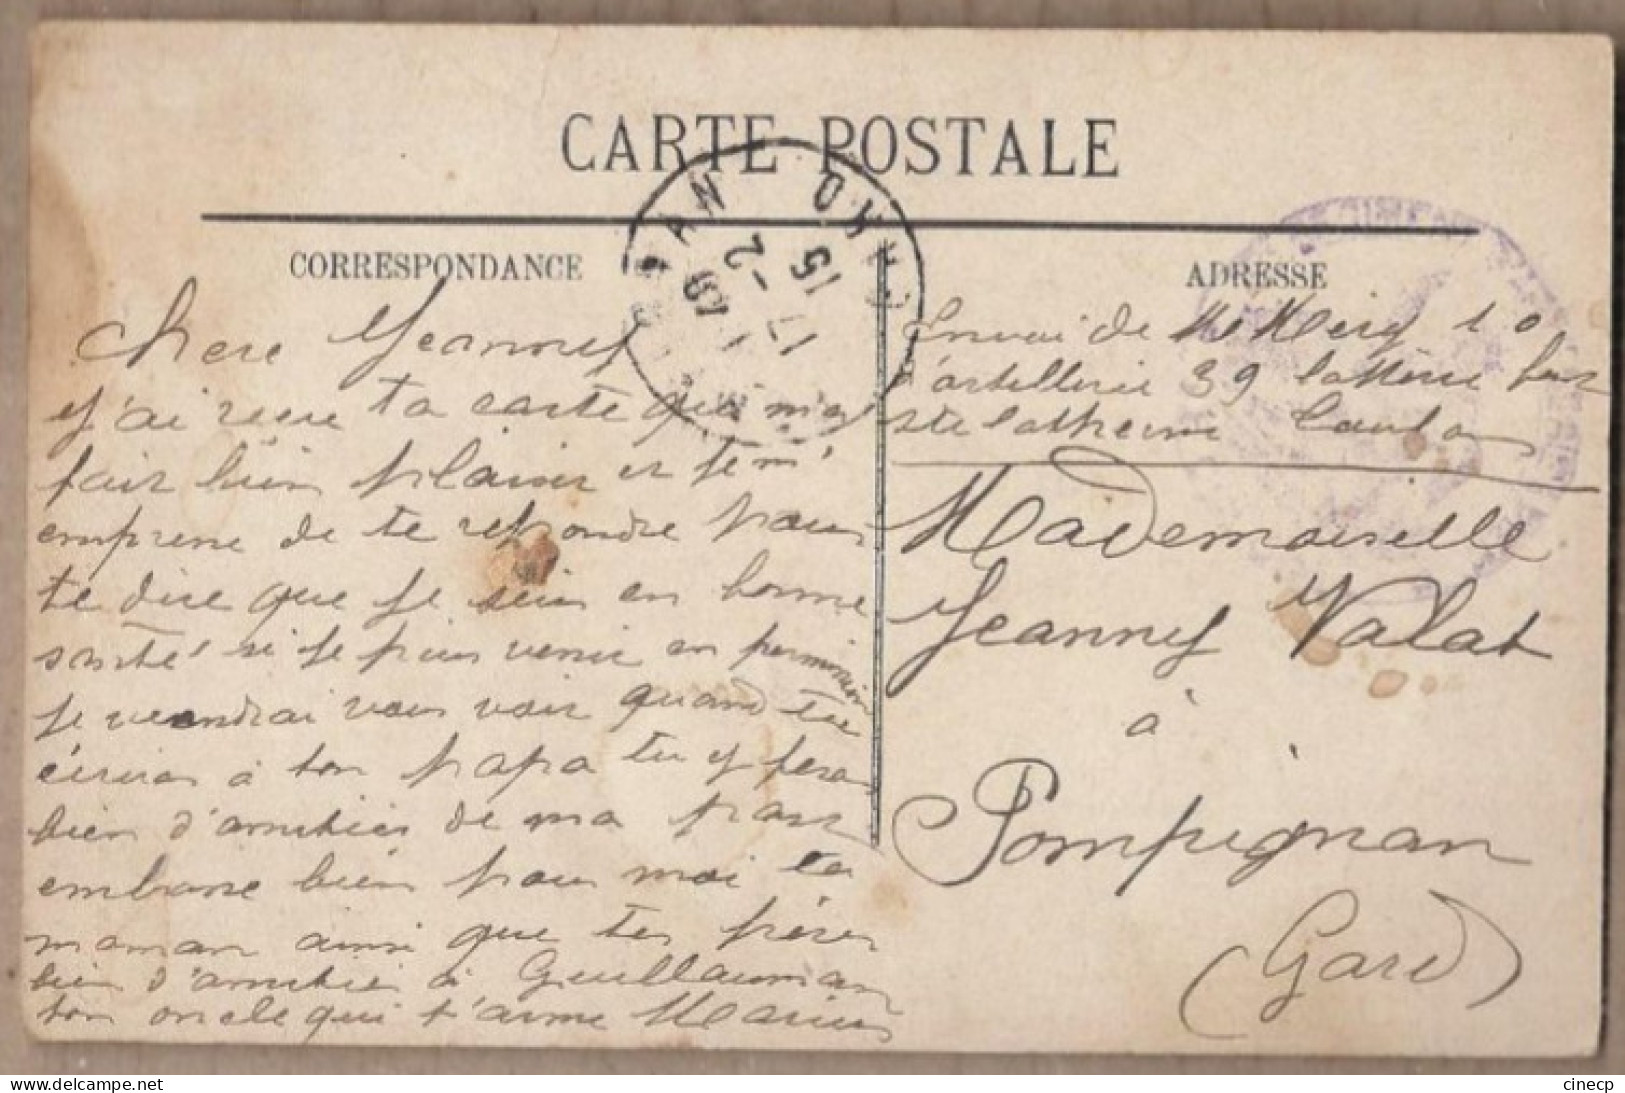 CARTE POSTALE
CORRESPONDANCE
Chere Jeanney
j'ai recu ta carte qui m'a
fait bien plaisir et je m'
emprene de te repondre pour
te dire que je suis en bonne
santé si je puis venir en permission
je veandrai vous voir quand tu
écriras à ton papa tu y feras
bien d'amitiés de ma part
embrase bien pour moi ta
maman ainsi que tes fréres
bien d'amitié à Guillauman
ton oncle qui t'aime Marius
15
2
19
ADRESSE
Envoi de
d'artillerie 39 batterie fort
Ste Catherine Toulon
Mademoiselle
Jeanney Valat
à
Pompignan
(Gard)
cinecp